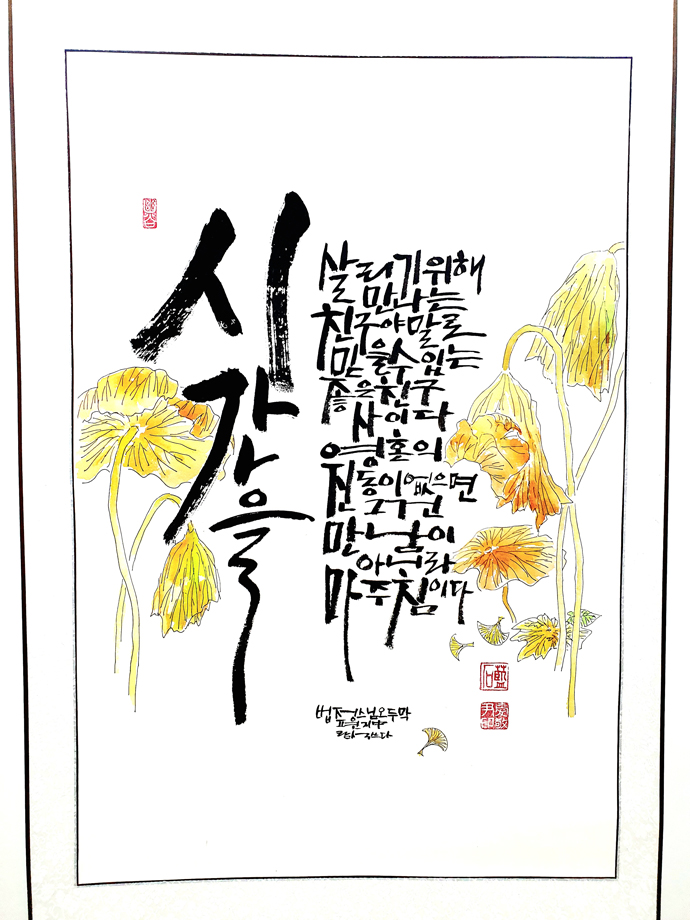 시
간을
살리기위해
만나는
친구야말로
믿을수있는
좋은친구
사이다
영혼의
진동이없으면
그건
만남이
아니라
마주침이다
법정스님오두막
藍石